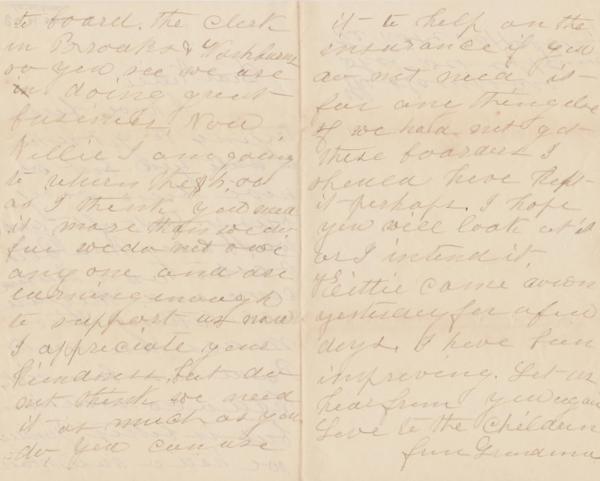 to board. the Clerk
in Brooks & Washburns
so you see we are
in doing great
business, Now
Nellie I am going
to return the $5.00
as I think you need
it more than we do
for we do not owe
any one and are
earning enough
to support us now
I appreciate your
kindness, but do
not think we need
it as much as you
do you can use
it to help on the
insurance if you
do not need it
for one thing else
if we had not got
these boarders I
should have kept
it perhaps. I hope
you will look at it
as I intend it.
came down
yesterday for a few
days. I have been
improving. Let us
hear from you again
Love to the Children
from Grandma